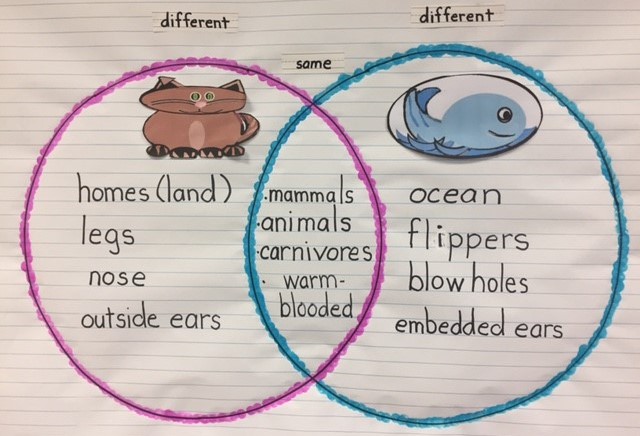 different
different
same
homes (land)
legs
nose
outside ears
·mammals
·animals
·carnivores
· warm-
blooded
ocean
flippers
blowholes
embedded ears